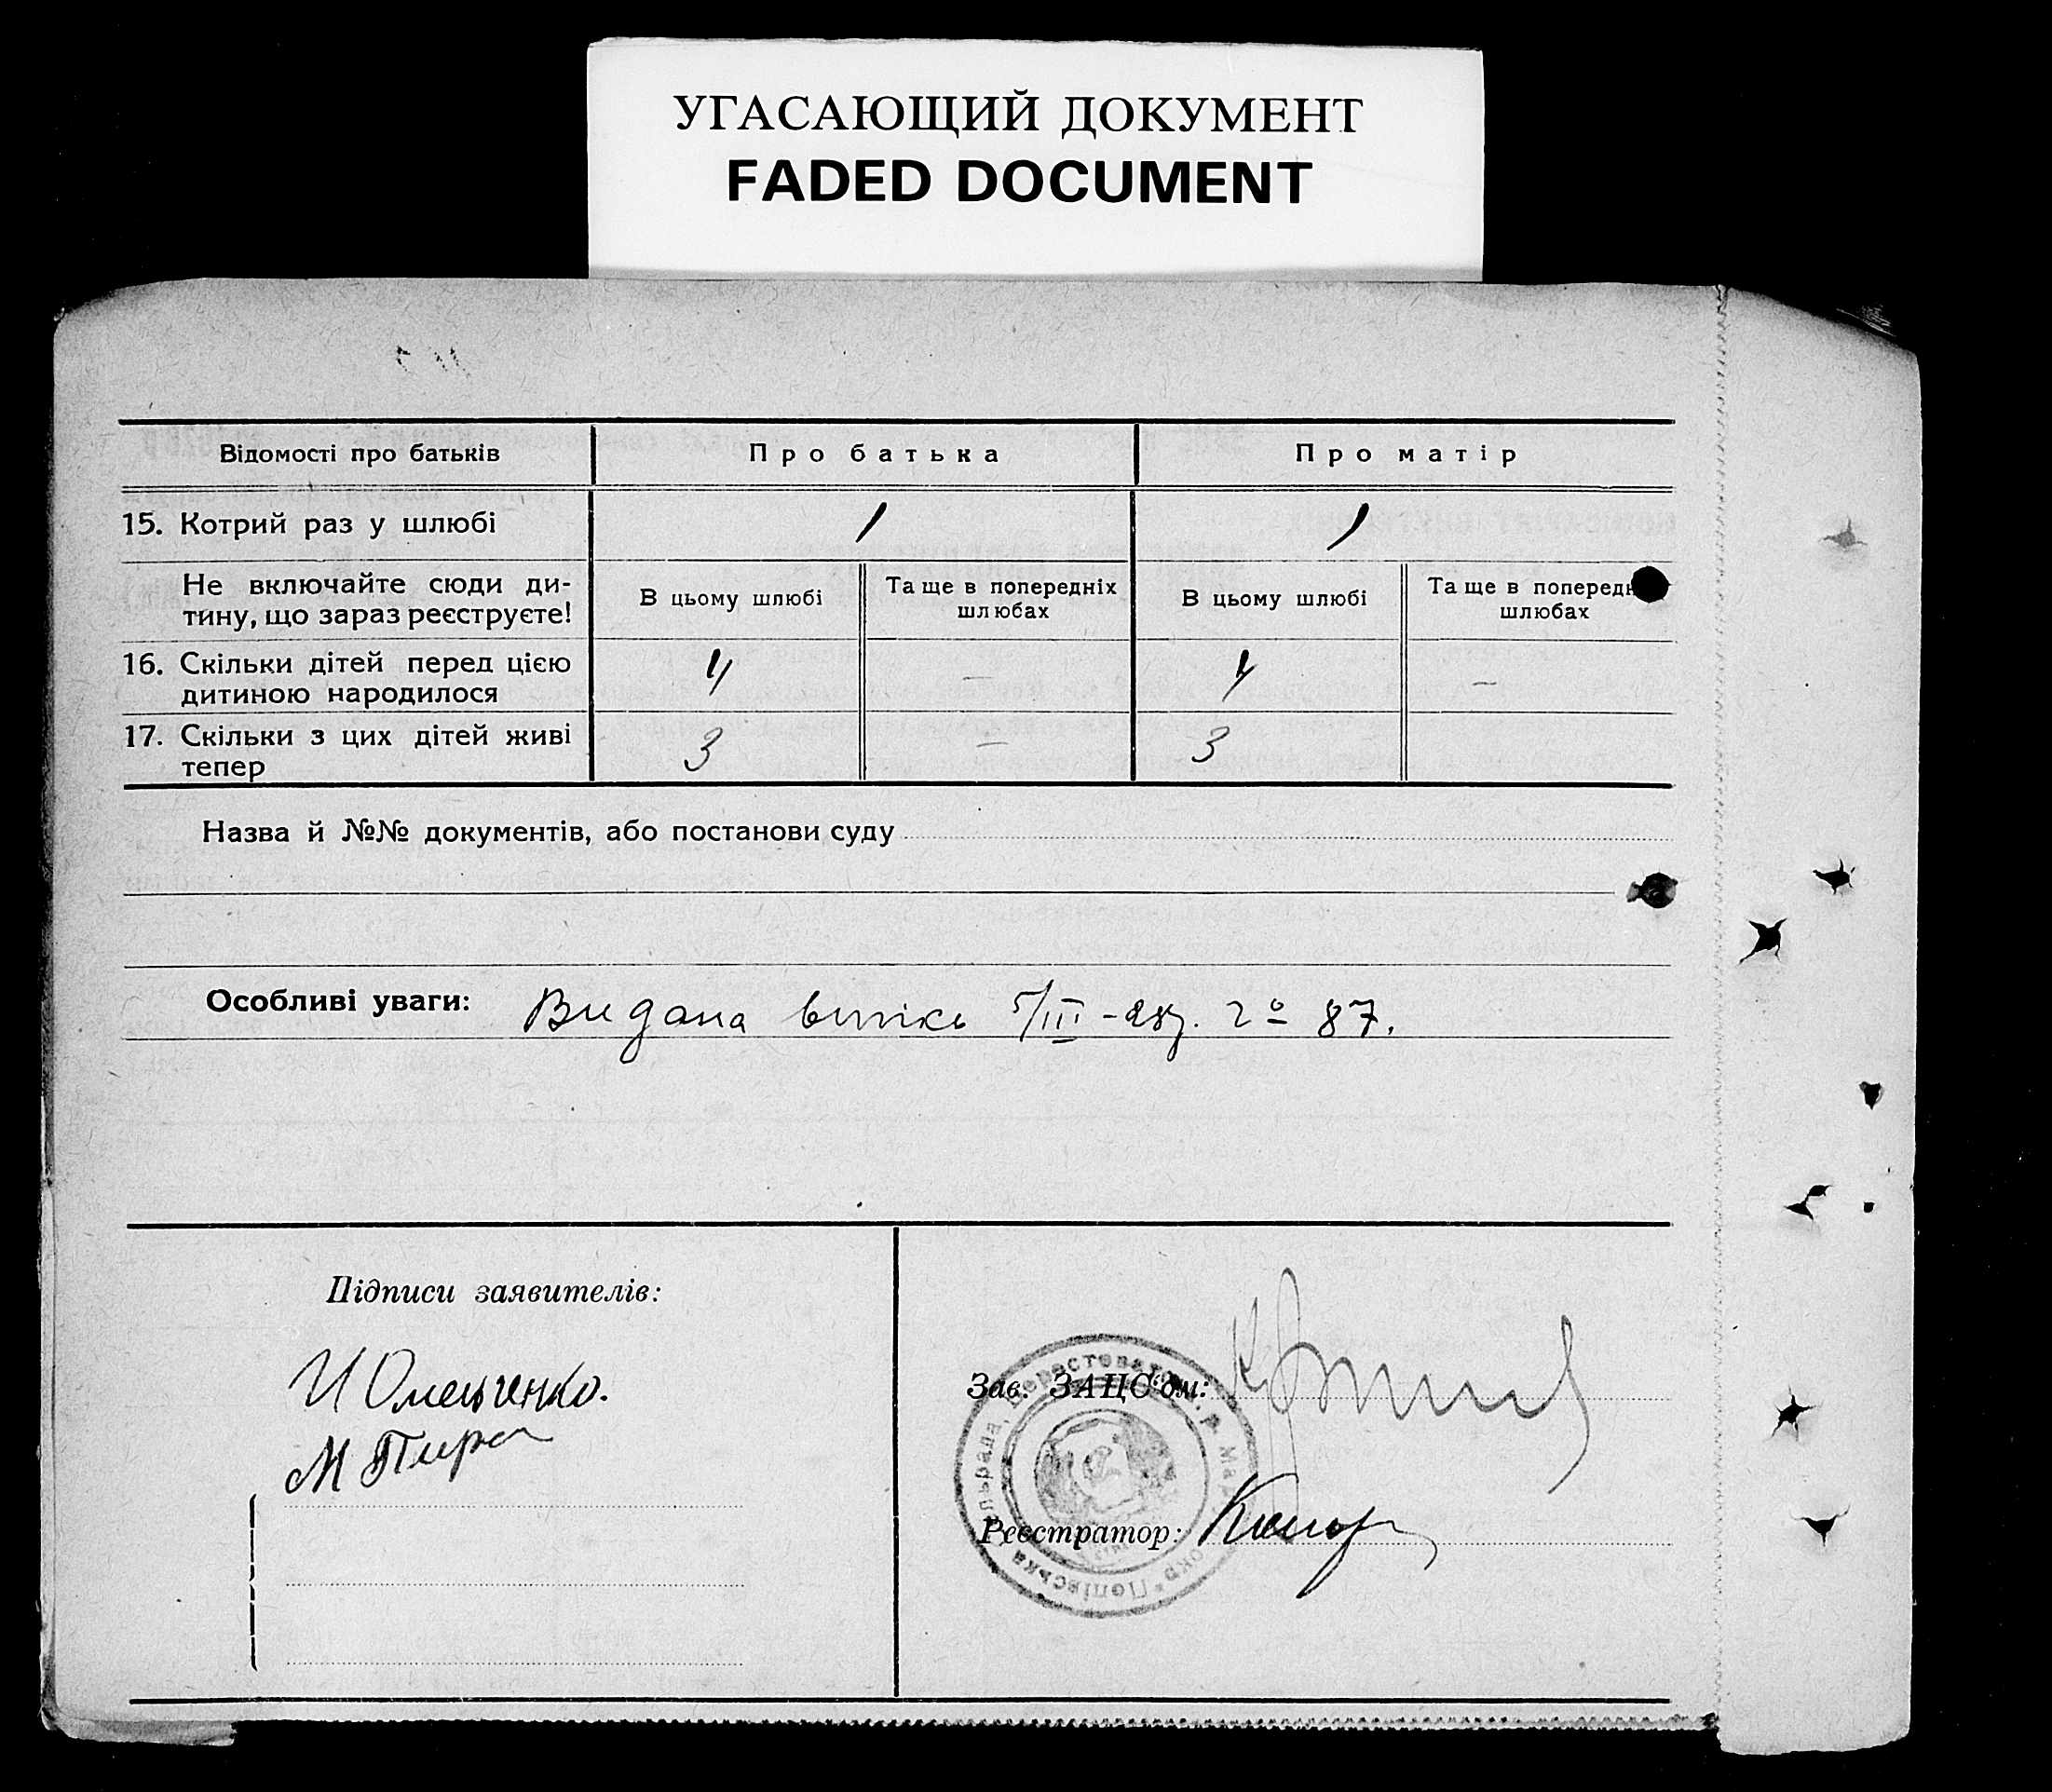 УГАСАЮЩИЙ ДОКУМЕНТ
FADED DOCUMENT
Відомості про батьків
Про батька
Про матір
15. Котрий раз у шлюбі
1
1
Не включайте сюди ди-
тину, що зараз реєструєте!
В цьому шлюбі
Та ще в попередніх
шлюбах
В цьому шлюбі
Та ще в попередн
шлюбах
16. Скільки дітей перед цією
дитиною народилося
4
–
4
–
17. Скільки з цих дітей живі
тепер
3
–
3
Назва й №№ документів, або постанови суду
Особливі уваги: Видана 5/III-28р. 87.
Підписи заявителів:
И Омельченко.
М
Зав. ЗАЦС'ом:
Реєстратор:
Попівська